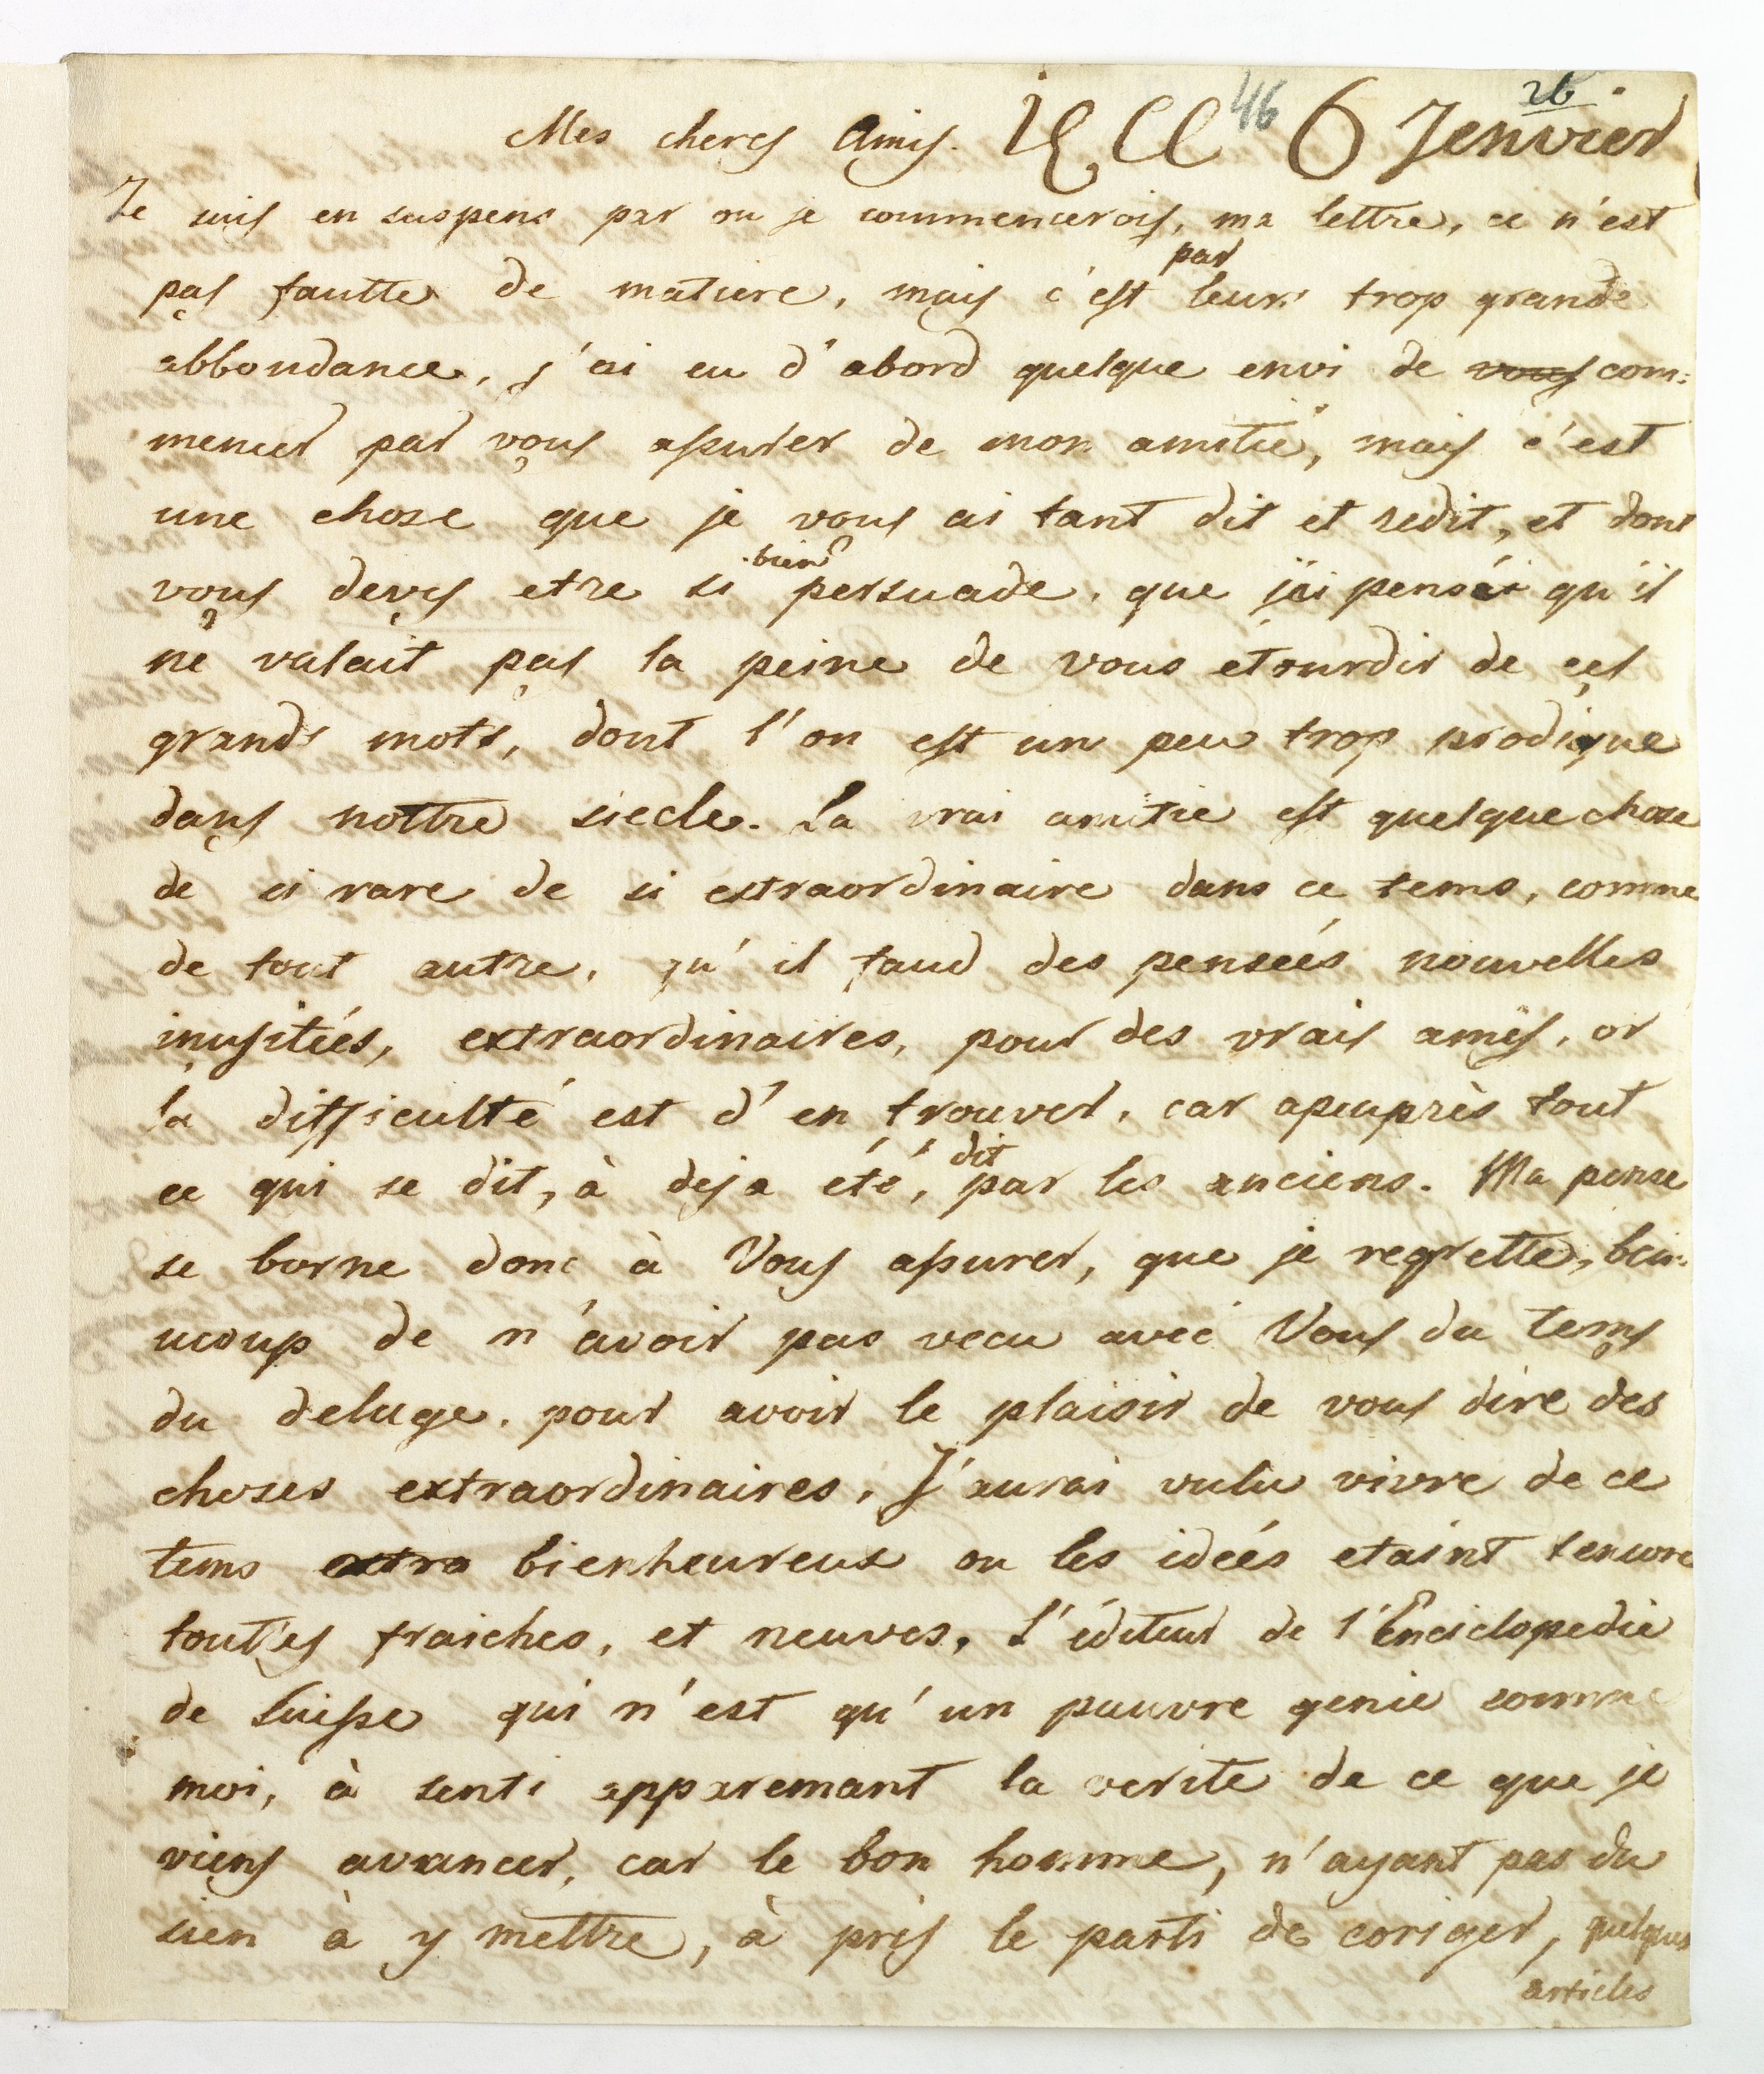 26
46
Mes chers Amis. le CC 6 Jenvier
Je suis en suspens par ou je commencerois, ma lettre, ce n'est
par
pas fautte de matiere, mais c'est leur trop grande
abbondance, j'ai eu d'abord quelque envi de vous com:
mencer par vous assurer de mon amitié, mais c'est
une chose que je vous ai tant dit et redit, et dont
bien
vous devés etre si persuade, que j'ai pensai qu'il
ne valait pas la peine de vous étourdir de ces
grands mots, dont l'on est un peu trop prodigue
dans nottre siecle. La vrai amitie est quelque chose
de si rare de si extraordinaire dans ce tems, comme
de tout autre, qu'il faud des penseés nouvelles
inusiteés, extraordinaires, pour des vrais amis, or
la difficulté est d'en trouver, car apeuprès tout
dit
ce qui se dit, à deja été, par les anciens. Ma pense
se borne donc à Vous assurer, que je regrette, bea:
ucoup de n'avoir pas vecu avec Vous du tems
du deluge. pour avoir le plaisir de vous dire des
choses extraordinaires, J'aurai vulu vivre de ce
tems extra bienheureux ou les ideés etaint encore
touttes fraiches, et neuves. L'éditeur de l'Enciclopedie
de Suisse qui n'est qu'un pauvre genie comme
moi, à senti apparemant la verite de ce que je
viens avancer, car le bon homme, n'ayant pas du
sien à y mettre, à pris le parti de coriger, quelques
articles